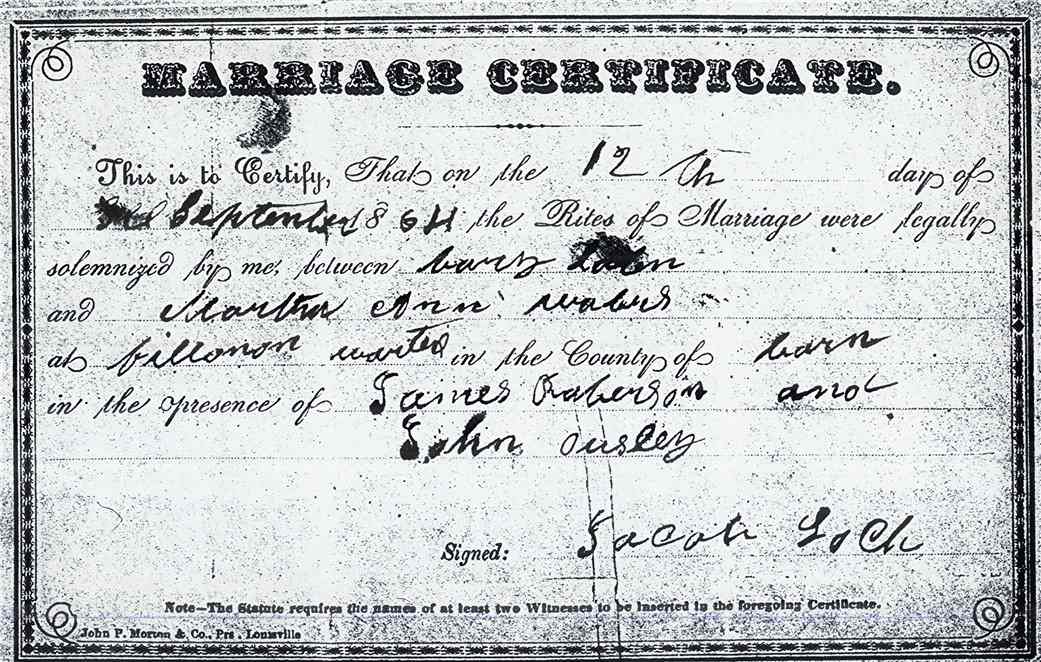 MARRIAGE CERTIFICATE.
This is to Certify, That on the 12 th day of
September 1864 the Rites of Marriage were legally
solemnized by me, between
and Martha Ann wabers
at fillomon warted in the County of barn
in the presence of James Raberson and
John ousley
Signed: Jacob Loch
Note—The Statute requires the names of at least two Witnesses to be inserted in the foregoing Certificate.
John P. Morton & Co., Prs, Louisville